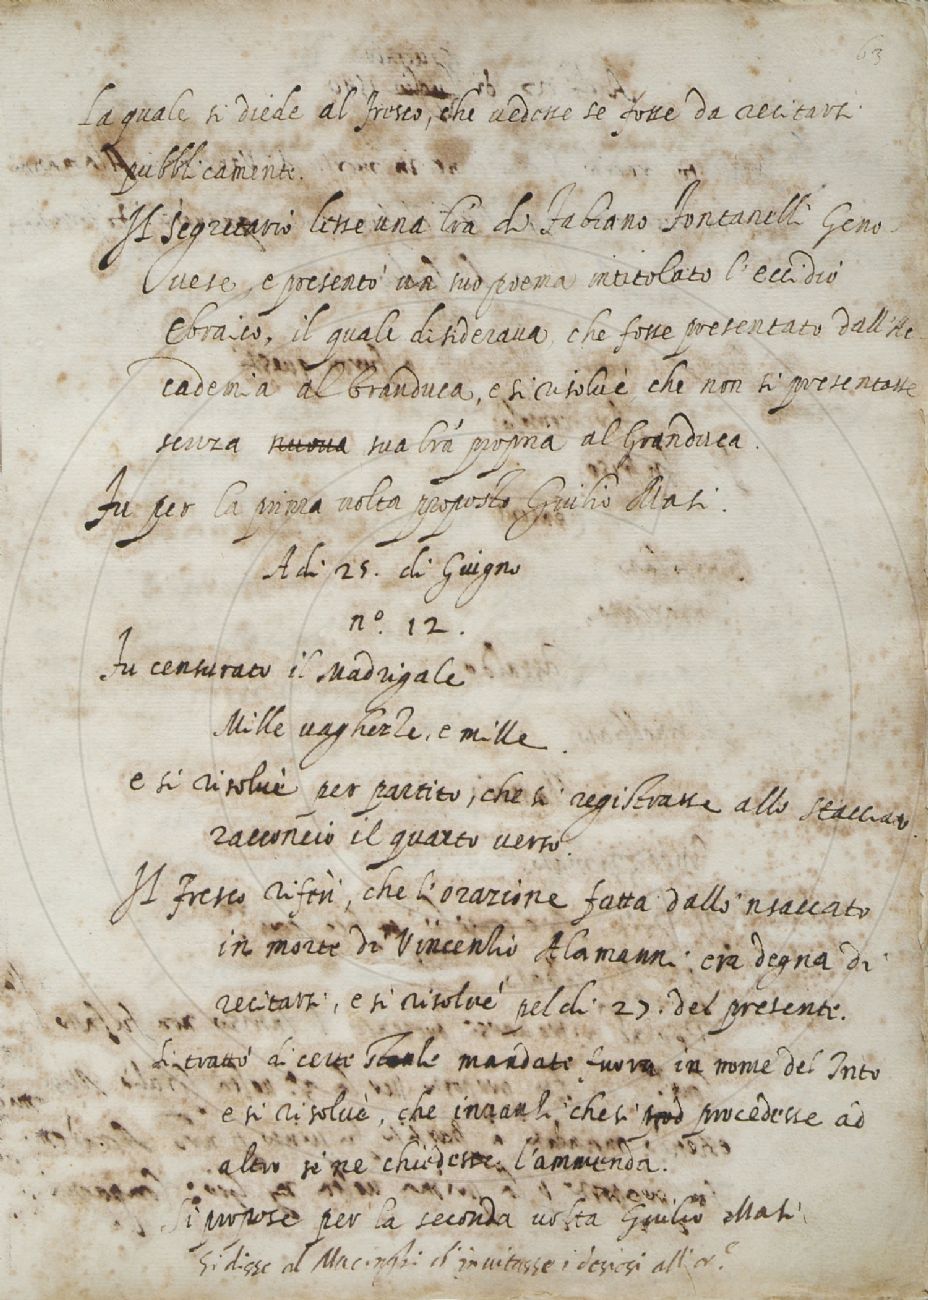 63
La quale si diede al Fresco, che vedesse se fosse da recitarsi
pubblicamente.
Il Segretario lesse una lra di Fabiano Fontanelli Geno
vese, e presentò un suo poema intitolato l'eccidio
Ebraico, il quale disiderava, che fosse presentato dall'Ac
cademia al Granduca, e si risolvè, che non si presentasse
senza nuova sua lra propria al Granduca.
Fu per la prima volta proposto Giulio Masi.
A di 25. di Giugno
n.º 12.
Fu censurato il Madrigale
Mille vaghezze, e mille.
e si risolvè per partito, che si registrasse allo stacciato
racconcio il quarto verso.
Il Fresco riferì, che l'orazione fatta dallo 'nsaccato
in morte di Vincenzio Alamanni era degna di
recitarsi, e si risolvè pel di 27. del presente.
Si trattò di certe mandate fuora in nome del Into
e si risolvè, che innanzi, che si procedesse ad
altro se ne chiedesse l'ammenda.
Si propose per la seconda volta Giulio Masi
Si disse al Macinghi ch'invitasse i desiosi all'or.e